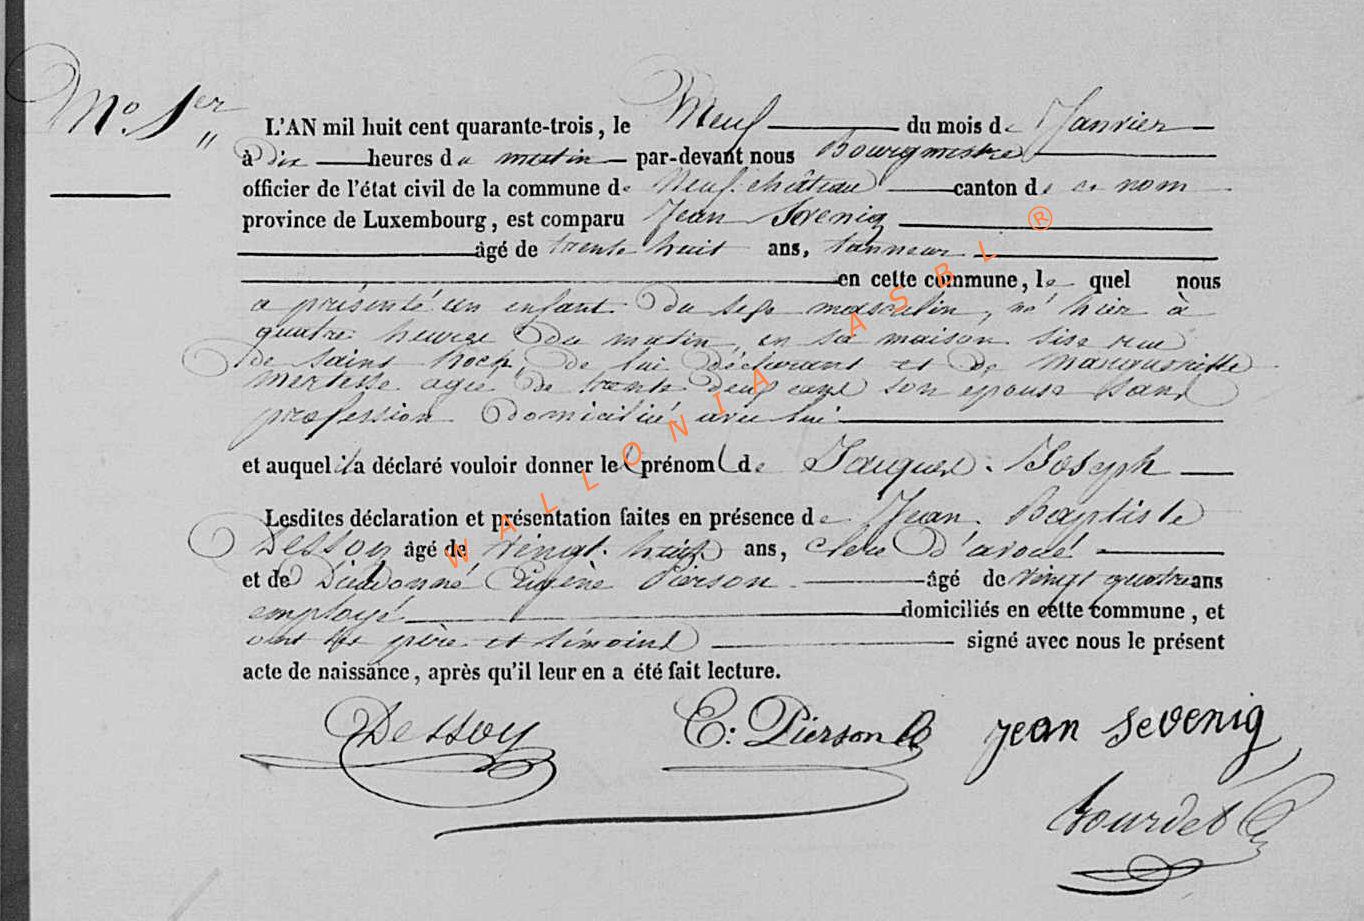 No. 1er
L'AN mil huit cent quarante-trois, le Neuf du mois de Janvier
à dix heures du matin par-devant nous Bourgmestre
officier de l'état civil de la commune de Neufchâteau canton de ce nom
province de Luxembourg, est comparu Jean Sevenig
âgé de trente huit ans, tanneur
en cette commune, le quel nous
a présenté un enfant du sexe masculin, né hier à
quatre heures du matin, en sa maison sise rue
de Saint Roch, de lui déclarant et de Margueritte
agée de trente deux ans son épouse sans
profession domicilié avec lui
et auquel il a déclaré vouloir donner le prénom de Jacques Joseph
Lesdites déclaration et présentation faites en présence de Jean Baptiste
Dessoy âgé de vingt huit ans, clerc d'avoué
et de Dieudonné Eugène Pierson âgé de vingt quatre ans
employé domiciliés en cette commune, et
ont les père et témoins signé avec nous le présent
acte de naissance, après qu'il leur en a été fait lecture.
Dessoy E: Pierson jean sevenig
Bourdet
WALLONIA ASBL ®